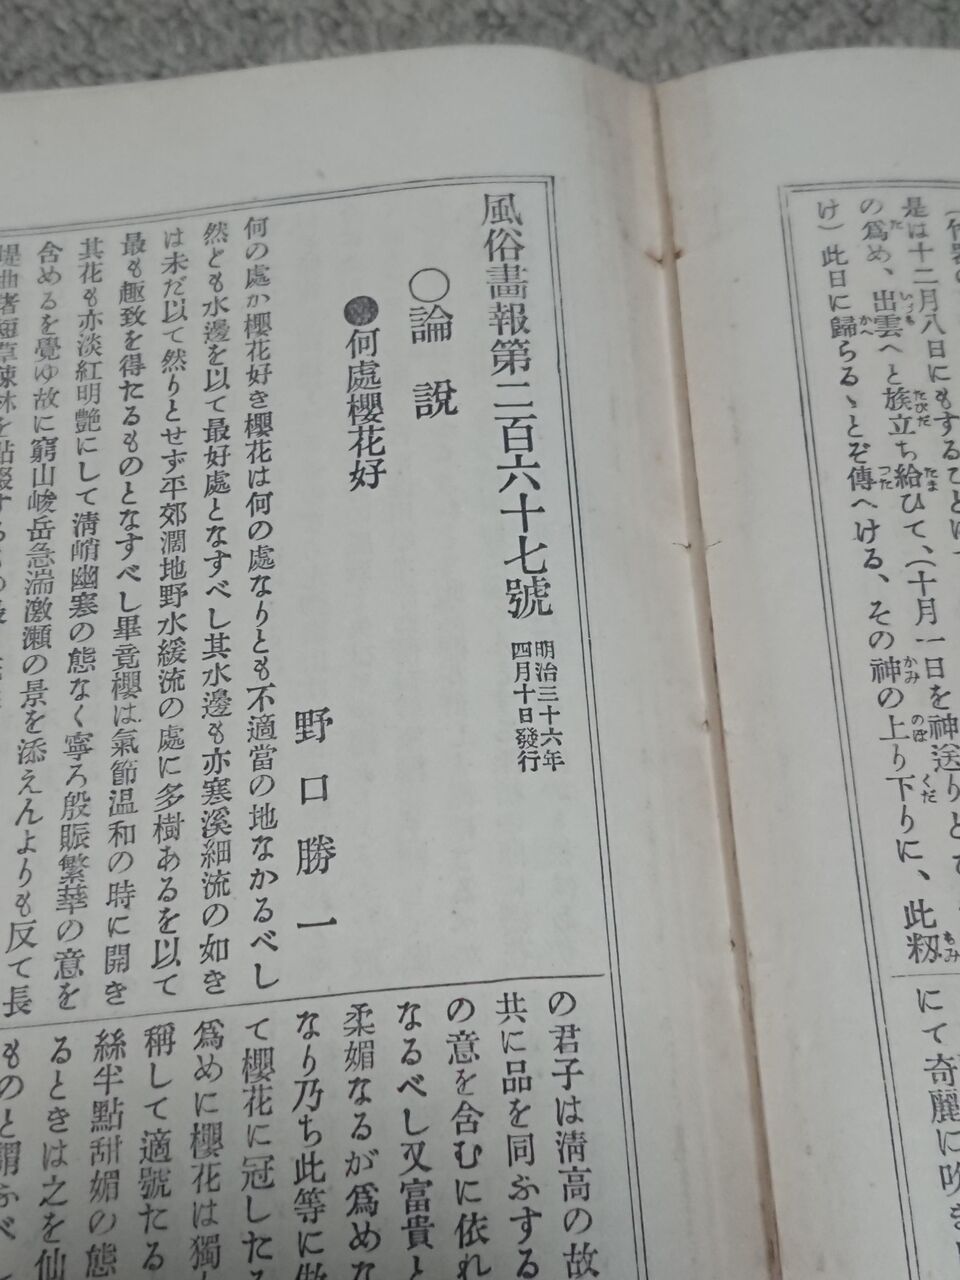 是は十二月八日にもするひとは
の爲め、出雲へと族立ち給ひて、(十月一日を神送りと
け)此日に歸らるゝとぞ傳へける、その神の上り下りに、此籾
にて奇麗に吹き
風俗畫報第二百六十七號
明治三十六年
四月十日發行
○論説
●何處櫻花好
野口勝一
何の處か櫻花好き櫻花は何の處なりとも不適當の地なかるべし
然ども水邊を以て最好處となすべし其水邊も亦寒溪細流の如き
は未だ以て然りとせず平郊濶地野水緩流の處に多樹あるを以て
最も趣致を得たるものとなすべし畢竟櫻は氣節温和の時に開き
其花も亦淡紅明艶にして淸峭幽寒の態なく寧ろ殷賑繁華の意を
含めるを覺ゆ故に窮山峻岳急湍激瀬の景を添えんよりも反て長
堤曲渚短草疎林を點綴する
の君子は淸高の故
共に品を同ふする
の意を含むに依れ
なるべし又富貴と
柔媚なるが爲めな
なり乃ち此等に倣
て櫻花に冠したる
爲めに櫻花は獨
稱して適號たる
絲半點甜媚の態
るときは之を仙
ものと謂ふべ